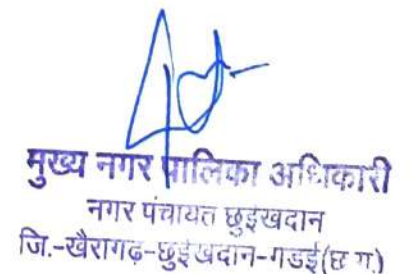 मुख्य नगर पालिका अधिकारी
नगर पंचायत छुईखदान
जि.-खैरागढ़-छुईखदान-गडई(छ.ग.)